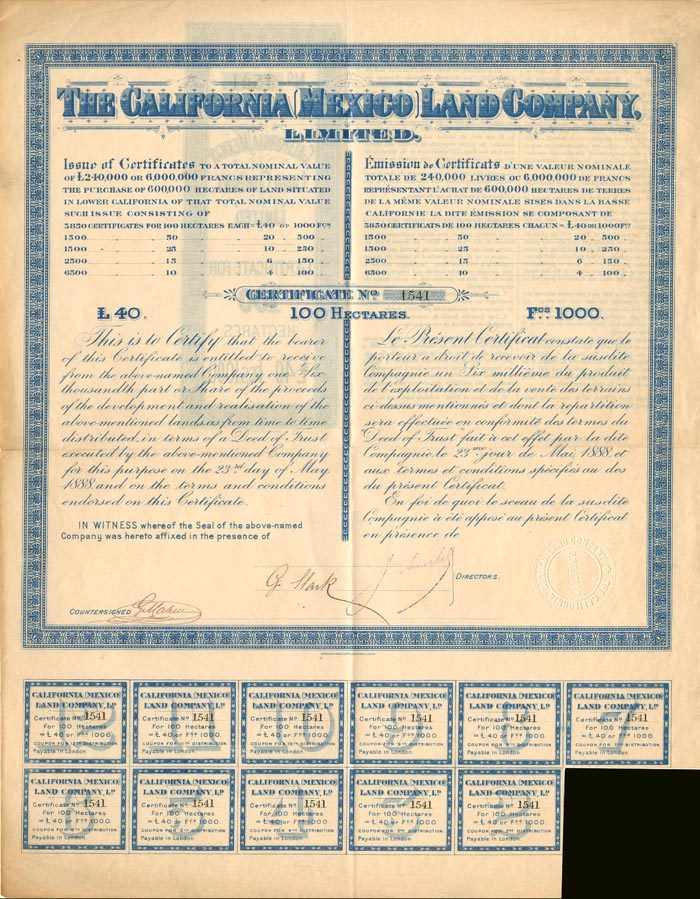 THE CALIFORNIA (MEXICO) LAND COMPANY,
LIMITED.
Issue of Certificates TO A TOTAL NOMINAL VALUE
OF £240,000 OR 6,000,000 FRANCS REPRESENTING
THE PURCHASE OF 600,000 HECTARES OF LAND SITUATED
IN LOWER CALIFORNIA OF THAT TOTAL NOMINAL VALUE
SUCH ISSUE CONSISTING OF
3850 CERTIFICATES FOR 100 HECTARES EACH = £40 OR 1000 Fcs
1500 50 20 500
1500 25 10 250
2500 15 6 150
6500 10 4 100
Émission de Certificats D'UNE VALEUR NOMINALE
TOTALE DE 240,000 LIVRES OU 6,000,000 DE FRANCS
REPRÉSENTANT L'ACHAT DE 600,000 HECTARES DE TERRES
DE LA MÊME VALEUR NOMINALE SISES DANS LA BASSE
CALIFORNIE LA DITE ÉMISSION SE COMPOSANT DE
3850 CERTIFICATS DE 100 HECTARES CHACUN = £40 OU 1000 Fcs
1500 50 20 500
1500 25 10 250
2500 15 6 150
6500 10 4 100
CERTIFICATE No 1541
£40. 100 HECTARES. Fcs 1000.
This is to Certify that the bearer
of this Certificate is entitled to receive
from the above-named Company one Six
thousandth part or Share of the proceeds
of the development and realisation of the
above-mentioned lands, as from time to time
distributed, in terms of a Deed of Trust
executed by the above-mentioned Company
for this purpose on the 23rd day of May
1888 and on the terms and conditions
endorsed on this Certificate.
IN WITNESS whereof the Seal of the above-named
Company was hereto affixed in the presence of
Le Présent Certificat constate que le
porteur a droit de recevoir de la susdite
Compagnie un Six millième du produit
de l'exploitation et de la vente des terrains
ci-dessus mentionnés et dont la repartition
sera effectuée en conformité des termes du
Deed of Trust fait à cet effet par la dite
Compagnie le 23me jour de Mai 1888 et
aux termes et conditions spécifiés au dos
du présent Certificat.
En foi de quoi le sceau de la susdite
Compagnie à été apposé au présent Certificat
en présence de
G. Stark
DIRECTORS.
COUNTERSIGNED
CALIFORNIA (MEXICO)
LAND COMPANY, Ld
Certificate No 1541
For 100 Hectares
= £40 or Fcs 1000.
COUPON FOR 12TH DISTRIBUTION
Payable in London
CALIFORNIA (MEXICO)
LAND COMPANY, Ld
Certificate No 1541
For 100 Hectares
= £40 or Fcs 1000.
COUPON FOR 11TH DISTRIBUTION
Payable in London
CALIFORNIA (MEXICO)
LAND COMPANY, Ld
Certificate No 1541
For 100 Hectares
= £40 or Fcs 1000.
COUPON FOR 10TH DISTRIBUTION
Payable in London
CALIFORNIA (MEXICO)
LAND COMPANY, Ld
Certificate No 1541
For 100 Hectares
= £40 or Fcs 1000.
COUPON FOR 9TH DISTRIBUTION
Payable in London
CALIFORNIA (MEXICO)
LAND COMPANY, Ld
Certificate No 1541
For 100 Hectares
= £40 or Fcs 1000.
COUPON FOR 8TH DISTRIBUTION
Payable in London
CALIFORNIA (MEXICO)
LAND COMPANY, Ld
Certificate No 1541
For 100 Hectares
= £40 or Fcs 1000.
COUPON FOR 7TH DISTRIBUTION
Payable in London
CALIFORNIA (MEXICO)
LAND COMPANY, Ld
Certificate No 1541
For 100 Hectares
= £40 or Fcs 1000.
COUPON FOR 6TH DISTRIBUTION
Payable in London
CALIFORNIA (MEXICO)
LAND COMPANY, Ld
Certificate No 1541
For 100 Hectares
= £40 or Fcs 1000.
COUPON FOR 5TH DISTRIBUTION
Payable in London
CALIFORNIA (MEXICO)
LAND COMPANY, Ld
Certificate No 1541
For 100 Hectares
= £40 or Fcs 1000.
COUPON FOR 4TH DISTRIBUTION
Payable in London
CALIFORNIA (MEXICO)
LAND COMPANY, Ld
Certificate No 1541
For 100 Hectares
= £40 or Fcs 1000.
COUPON FOR 3RD DISTRIBUTION
Payable in London
CALIFORNIA (MEXICO)
LAND COMPANY, Ld
Certificate No 1541
For 100 Hectares
= £40 or Fcs 1000.
COUPON FOR 2ND DISTRIBUTION
Payable in London